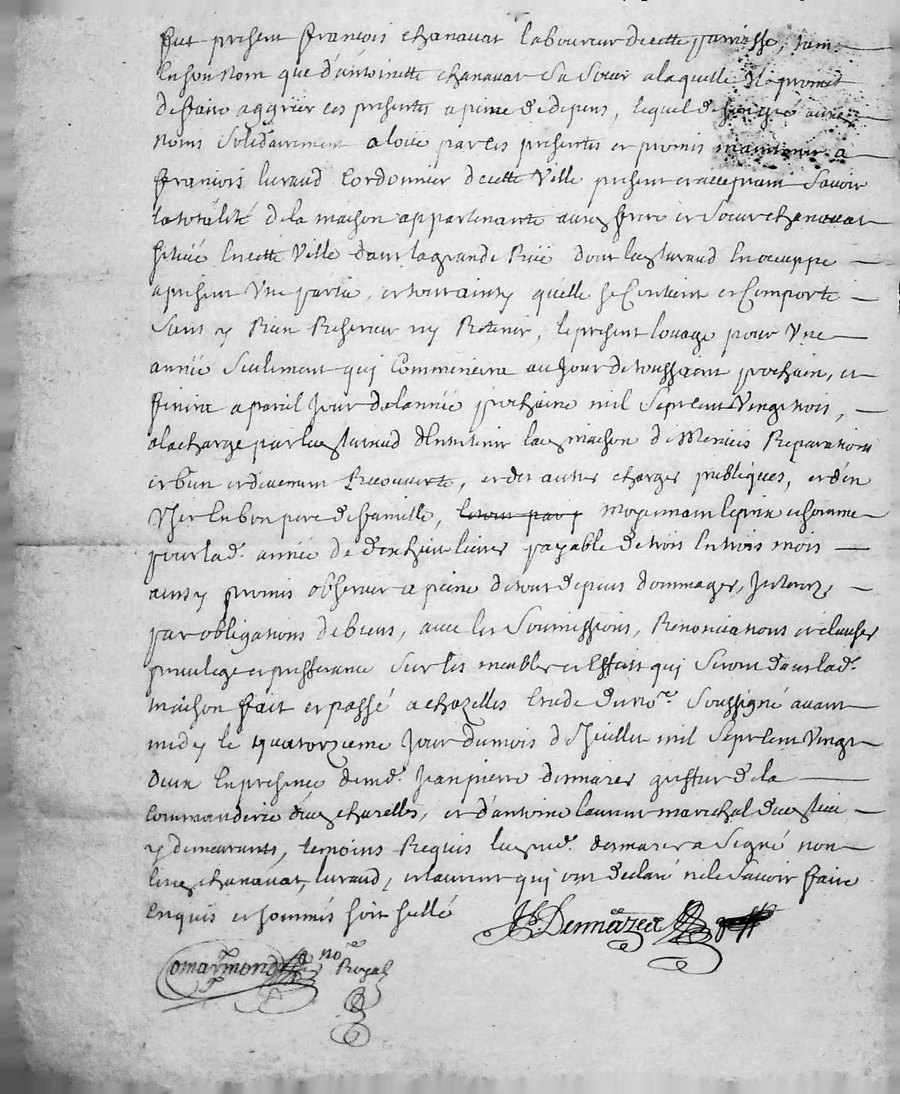 fut present françois chanavat laboureur decette parroisse, tant
En son nom que d'antoinette chanavat Sa Sœur a laquelle Il promet
defaire aggréér ces presentes a peine de depens, lequel de son gré auxd.
noms Solidairement a loüé par ces presentes et promis maintenir a
françois luraud Cordonnier decette Ville present et acceptant Savoir
la totalité de la maison appartenante auxd. frere et Soeur chanavat
scituéé En cette Ville dans la grande Rüe dont led. luraud En occuppe
apresent Une partie, et tout ainsy quelle se Contient et Comporte
Sans y Rien Reserver ny Retenir, le present loüage pour Une
annéé Seulement qui Commencera au Jour de toussaint prochain, et
finira a pareil Jour de lannéé prochaine mil Sept cent Vingt trois,
a la charge par led. luraud dEntretenir lad. maison de Menües Reparations
et bien et düement Recouverte, et des autres charges publiques, et d'en
User En bon pere de famille, le tout par moyennant le prix et somme
pour lad. annéé de dix huit livres payable de trois En trois mois
ainsy promis observer a peine de tous depens dommages, Interets,
par obligations de biens, avec les Soumissions, Renonciations et clauses
privilege et prefferance Sur les meubles et Effets qui Seront dans lad.
maison fait et passé a chazelles Etude du no.re Soussigné avant
midy le quatorzieme Jour du mois de Juillet mil Sept cent Vingt
deux En presence de me. Jean pierre demazes greffier de la
commanderie dud. chazelles, et d'antoine laurent marechal dud. lieu
y demeurants, temoins Requis led. me. demazes a Signé non
lesd. chanavat, luraud, et laurent qui ont declaré ne le Savoir faire
Enquis et sommés soit scellé
JP. Demazes
Comarmond no.re
Royal